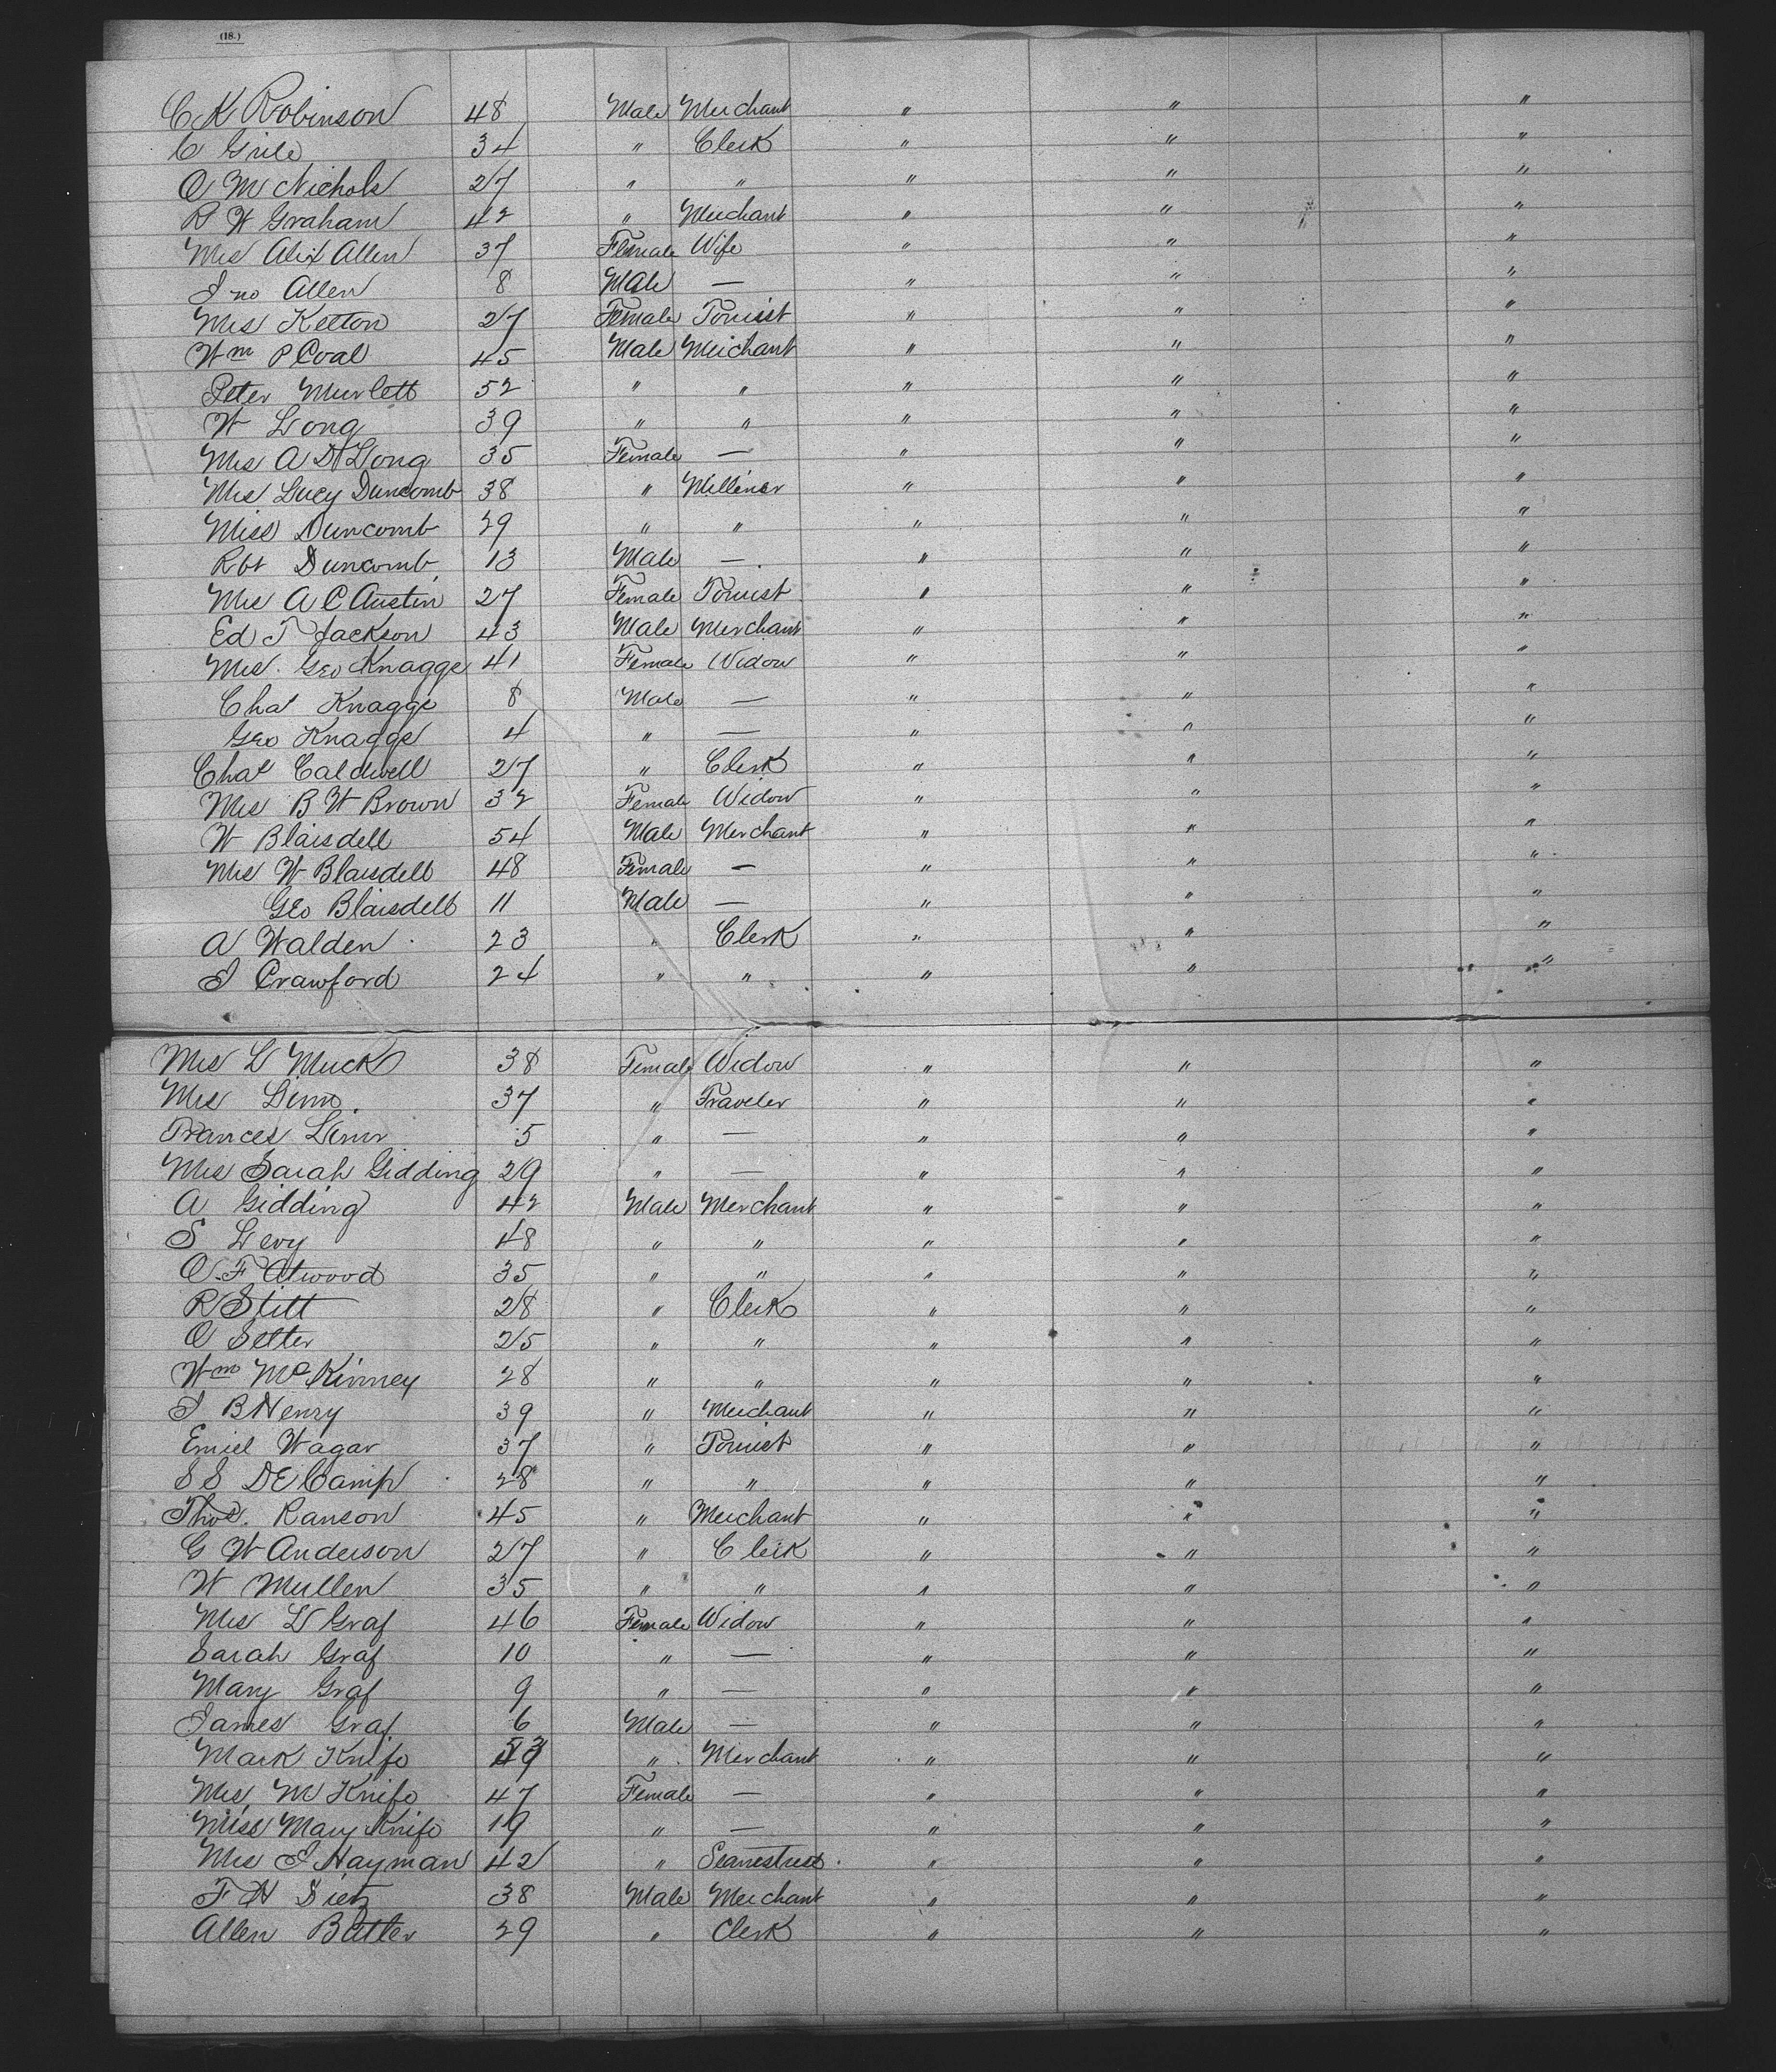 (18.)
C K Robinson 48 Male Merchant " " "
C Grile 34 " Clerk " " "
O M Nichols 27 " " " " "
R H Graham 42 " Merchant " " "
Mrs Alix Allen 37 Female Wife " " "
Jno Allen 8 Male — " " "
Mrs Kelton 27 Female Tourist " " "
Wm P Coal 45 Male Merchant " " "
Peter Murlett 52 " " " " "
W Long 39 " " " " "
Mrs A D Long 35 Female — " " "
Mrs Lucy Duncomb 38 " Milliner " " "
Miss Duncomb 29 " " " " "
Rbt Duncomb 13 Male — " " "
Mrs A C Austin 27 Female Tourist " " "
Ed T Jackson 43 Male Merchant " " "
Mrs. Geo Knaggs 41 Female Widow " " "
Chas Knaggs 8 Male — " " "
Geo Knaggs 4 " — " " "
Chas Caldwell 27 " Clerk " " "
Mrs B W Brown 32 Female Widow " " "
W Blaisdell 54 Male Merchant " " "
Mrs W Blaisdell 48 Female — " " "
Geo Blaisdell 11 Male — " " "
A Walden 23 " Clerk " " "
J Crawford 24 " " " " "
Mrs L Muck 38 Female Widow " " "
Mrs 37 " Traveler " " "
Frances 5 " — " " "
Mrs Sarah Gidding 29 " — " " "
A Gidding 42 Male Merchant " " "
S Levy 48 " " " " "
O. F Atwood 35 " " " " "
R Stitt 28 " Clerk " " "
O Setter 25 " " " " "
Wm McKinney 28 " " " " "
J B Henry 39 " Merchant " " "
Emiel Wagar 37 " Tourist " " "
S S DECamp 28 " " " " "
Thos. Ranson 45 " Merchant " " "
G W Anderson 27 " Clerk " " "
W Mullen 35 " " " " "
Mrs L Graf 46 Female Widow " " "
Sarah Graf 10 " — " " "
Mary Graf 9 " — " " "
James Graf 6 Male — " " "
Mark Knife " Merchant " " "
Mrs M Knife 47 Female — " " "
Miss Mary Knife 19 " — " " "
Mrs J Hayman 42 " Seamstress " " "
F H Dietz 38 Male Merchant " " "
Allen Butler 29 " Clerk " " "